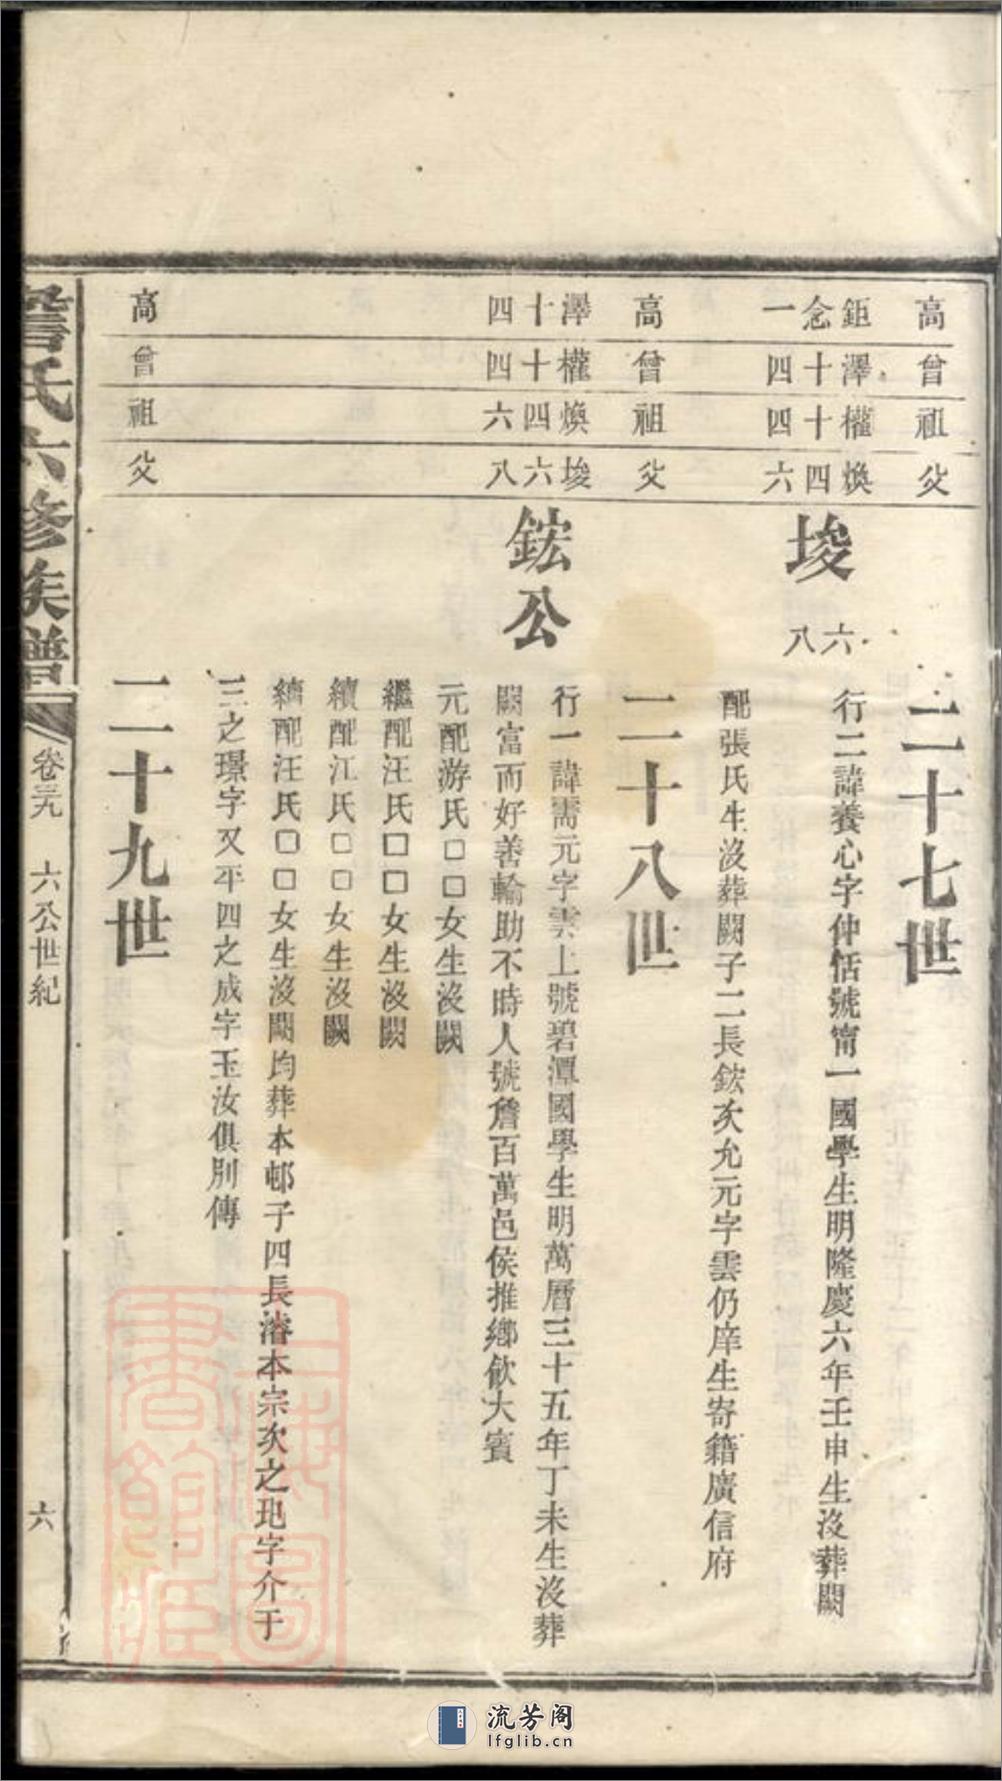 高 曾 祖 父
二十七世
鉅念一 澤十四 權十四 煥四六
埈六八
行二諱養心字仲恬號甯一國學生明隆慶六年壬申生沒葬闕
配張氏生沒葬闕子二長鋐次允元字雲仍庠生寄籍廣信府
高 曾 祖 父
二十八世
澤十四 權十四 煥四六 埈六八
鋐公
行一諱需元字雲上號碧潭國學生明萬曆三十五年丁未生沒葬
闕富而好善輸助不時人號詹百萬邑侯推鄉飲大賓
元配游氏□□女生沒闕
繼配汪氏□□女生沒闕
續配江氏□□女生沒闕
續配汪氏□□女生沒闕均葬本邨子四長濬本宗次之玭字介于
三之璟字又平四之成字玉汝俱別傳
高 曾 祖 父
二十九世
詹氏六修族譜
卷三九 六公世紀
六
上海圖書館藏
流芳阁
lfglib.cn